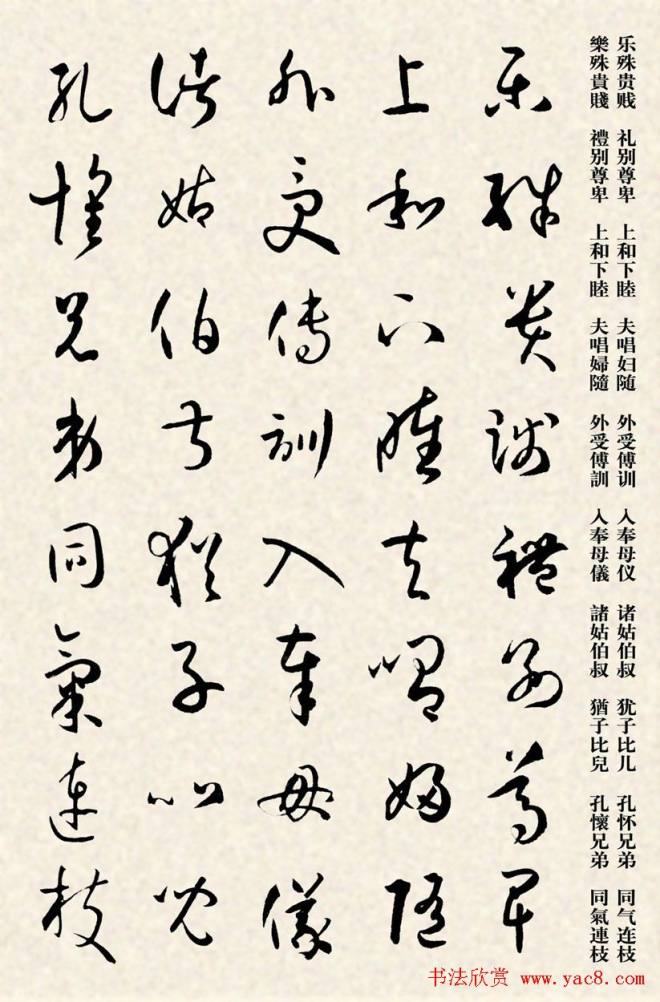 乐殊贵贱 礼别尊卑 上和下睦 夫唱妇随 外受傅训 入奉母仪 诸姑伯叔 犹子比儿 孔怀兄弟 同气连枝
樂殊貴賤 禮别尊卑 上和下睦 夫唱婦隨 外受傅訓 入奉母儀 諸姑伯叔 猶子比兒 孔懷兄弟 同氣連枝
樂殊貴賤禮别尊卑
上和下睦夫唱婦隨
外受傅訓入奉母儀
諸姑伯叔猶子比兒
孔懷兄弟同氣連枝
书法欣赏 www.yac8.com